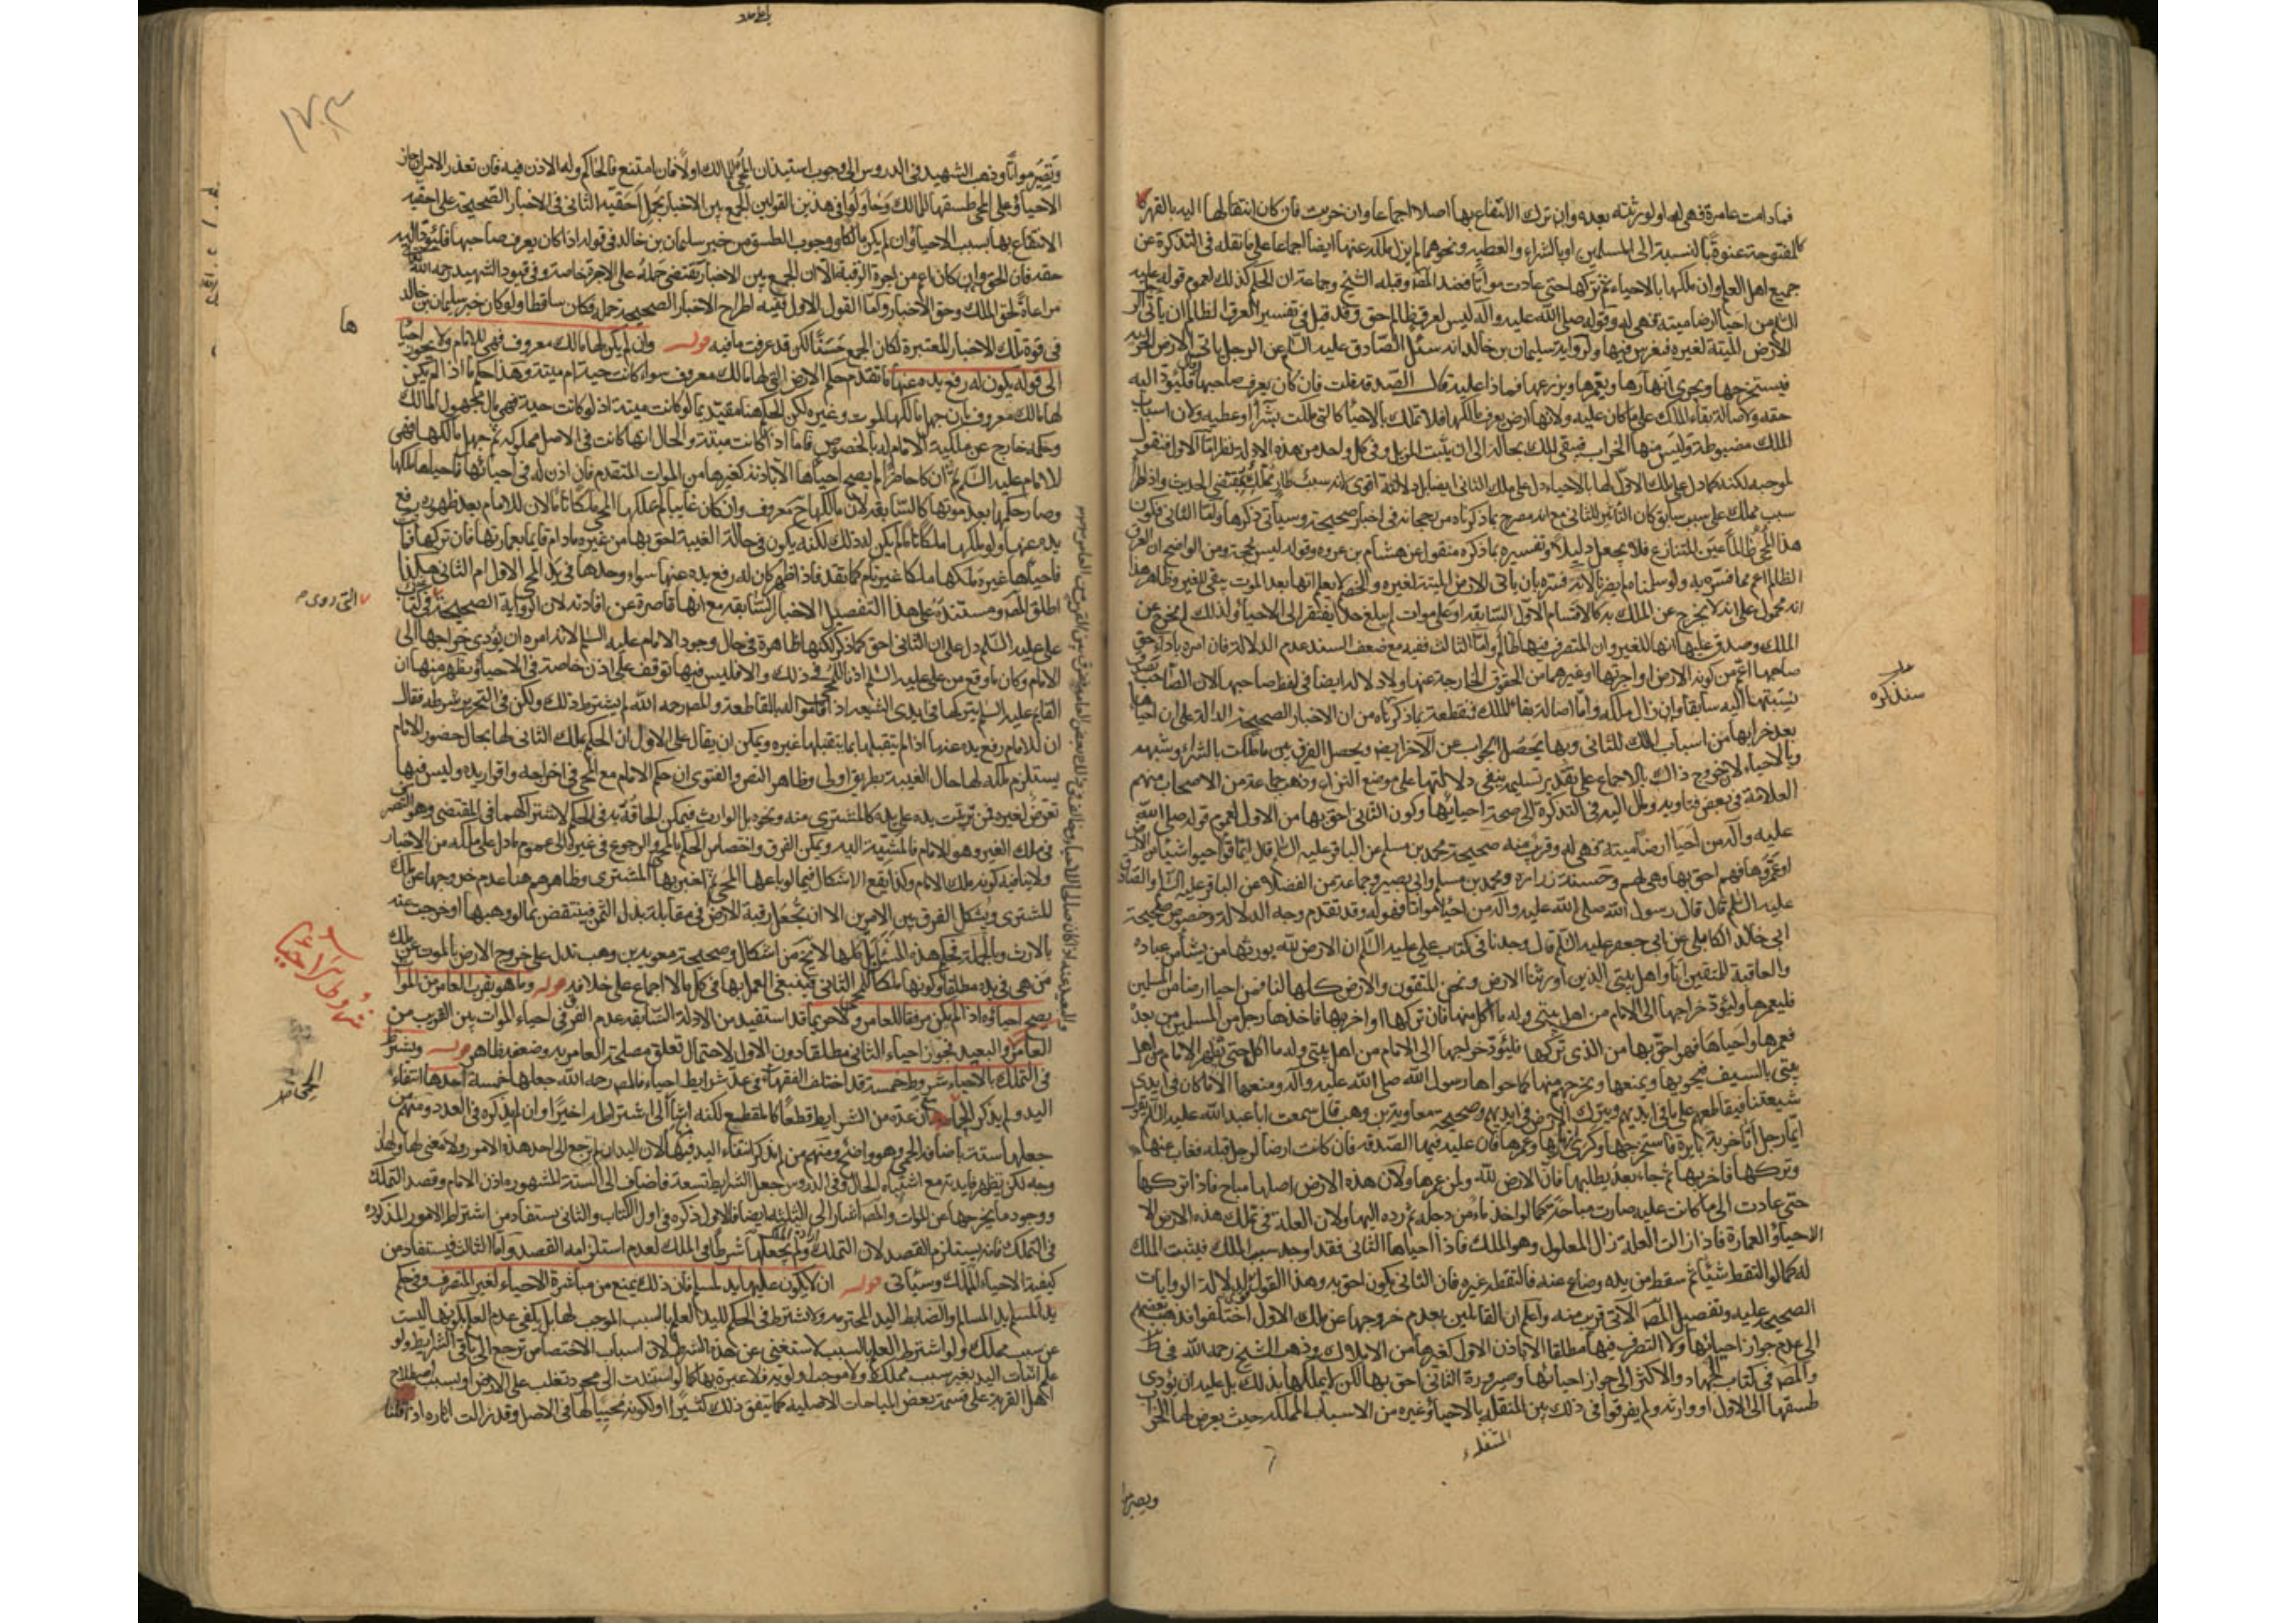 فمادامت عامرة فهى له او لورثته بعده وان ترك الانتفاع بها اصلا اجماعا وان خربت فان كان انتقالها اليه بالقهر كا
لمفتوحة عنوة بالنسبة الى المسلمين او بالشراء والعطية ونحوهما لم يزل ملكه عنها ايضا اجماعا على ما نقله فى التذكرة عن
جميع اهل العلم وان ملكها بالاحياء ثم تركها حتى عادت مواتا فعند المص وقبله الشيخ وجماعة ان الحكم كذلك لعموم قوله عليه
السلم من احيا ارضا ميتة فهى له وقوله صلى الله عليه وآله ليس لعرق ظالم حق وقد قيل فى تفسير العرق الظالم ان ياتى الرجل
الارض الميتة لغيره فيغرس فيها ولرواية سليمان بن خالد انه سئل الصادق عليه السلم عن الرجل ياتى الارض الخربة
فيستخرجها ويجرى انهارها ويعمرها ويزرعها فماذا عليه قال الصدقة قلت فان كان يعرف صاحبها قال فليؤد اليه
حقه ولاصالة بقاء الملك على ما كان عليه ولانها ارض يعرف مالكها فلا تملك بالاحياء كالتى ملكت بشراء او عطيه ولان اسباب
الملك مضبوطة وليس منها الخراب فيبقى الملك بحاله الى ان يثبت المزيل وفى كل واحد من هذه الادلة نظر اما الاول فنقول
بموجبه لكنه كما دل على ملك الاول لها بالاحياء دل على ملك الثانى ايضا
سبب مملك على سبب سابق كان التاثير للثانى مع انه مصرح بما ذكرناه من رجحانه فى اخبار صحيحة وسيأتى ذكرها واما الثانى فلكون
هذا المحيى ظالما عين المتنازع فلا يجعل دليلا وتفسيره بما ذكره منقول عن هشام بن عروه وقوله ليس بحجة ومن الواضح ان العرق
الظالم اعم مما فسره به ولو سلمناه لم يضرنا لانه فسره بان ياتى الارض الميتة لغيره والخصم لا يعلم انها بعد الموت يبقى للغير وظاهر هذا
انه محمول على انه لا يخرج عن الملك بذلك كالاقسام الاول السابقة او على موات لم يبلغ حدا يفتقر الى الاحياء ولذلك لم يخرج عن
الملك وصدق عليها انها للغير وان المتصرف فيها ظالم واما الثالث ففيه مع ضعف السند عدم الدلالة فان امره باداء حق
صاحبها اعم من كونه الارض او اجرتها او غيرهما من الحقوق الخارجة عنها ولا دلالة ايضا فى لفظ صاحبها لان الصاحب يصدق
بنسبتها اليه سابقا وان زال ملكه واما اصالة بقاء الملك فنقطعه بما ذكرناه من ان الاخبار الصحيحة الدالة على ان احياها
بعد خرابها من اسباب الملك للثانى وبها يحصل الجواب عن الاخر ايضا ويحصل الفرق بين ما ملكت بالشراء وشبهه
وبالاحياء لخروج ذاك بالاجماع على تقدير تسليمه ينفى دلالتها على موضع النزاع وذهب جماعة من الاصحاب منهم
العلامة فى بعض فتاويه ومال اليه فى التذكرة الى صحة احيائها وكون الثانى احق بها من الاول لعموم قوله صلى الله
عليه وآله من احيا ارضا ميتة فهى له وقريب منه صحيحة محمد بن مسلم عن الباقر عليه السلم قال ايما قوم احيوا شيئا من الارض
او عمروها فهم احق بها وهى لهم وحسنة زرارة ومحمد بن مسلم وابى بصير وجماعة من الفضلاء عن الباقر عليه السلم والصادق
عليه السلم قال قال رسول الله صلى الله عليه وآله من احيا مواتا فهو له وقد تقدم وجه الدلالة وخصوص صحيحة
ابى خالد الكابلى عن ابى جعفر عليه السلم قال وجدنا فى كتاب على عليه السلم ان الارض لله يورثها من يشاء من عباده
والعاقبة للمتقين انا واهل بيتى الذين اورثنا الارض ونحن المتقون والارض كلها لنا فمن احيا ارضا من المسلمين
فليعمرها وليؤد خراجها الى الامام من اهل بيتى وله ما اكل منها فان تركها او اخربها فاخذها رجل من المسلمين من بعده
فعمرها واحياها فهو احق بها من الذى تركها فليؤد خراجها الى الامام من اهل بيتى وله ما اكل حتى يظهر الامام من اهل
بيتى بالسيف فيحويها ويمنعها ويخرجهم منها كما حواها رسول الله صلى الله عليه وآله ومنعها الا ما كان فى ايدى
شيعتنا فيقاطعهم على ما فى ايديهم ويترك الارض فى ايديهم وصحيحه معاوية بن وهب قال سمعت ابا عبد الله عليه السلم يقول
ايما رجل اتى خربة بايرة فاستخرجها وكرى انهارها وعمرها فان عليه فيها الصدقة فان كانت ارضا لرجل قبله فغاب عنها
وتركها فاخربها ثم جاء بعد يطلبها فان الارض لله ولمن عمرها ولان هذه الارض اصلها مباح فاذا تركها
حتى عادت الى ما كانت عليه صارت مباحة كما لو اخذ ماء من دجله ثم رده اليها ولان العلة فى تملك هذه الارض الا
الاحياء والعمارة فاذا زالت العلة زال المعلول وهو الملك فاذا احياها الثانى فقد اوجد سبب الملك فيثبت الملك
له كما لو التقط شيئا ثم سقط من يده وضاع عنه فالتقطه غيره فان الثانى يكون احق به وهذا القول لدلالة الروايات
الصحيح عليه وتفصيل المص الاتى قريب منه واعلم ان القائلين بعدم خروجها عن ملك الاول اختلفوا فذهب بعضهم
الى عدم جواز احيائها ولا التصرف فيها مطلقا الا باذن الاول كغيرها من الاملاك وذهب الشيخ رحمه الله فى ط
والمص فى كتاب الجهاد والاكثر الى جواز احيائها وصيرورة الثانى احق بها لكن لا يملكها بذلك بل عليه ان يؤدى
طسقها الى الاول او وارثه ولم يفرقوا فى ذلك بين المنتقلة بالاحياء وغيره من الاسباب المملكة حيث يعرض لها الخراب
سنذكره
وتصير مواتا
وتصير مواتا وذهب الشهيد فى الدروس الى وجوب استيذان المحيى للمالك اولا فان امتنع فالحاكم وله الاذن فيه فان تعذر الامران جاز
الاحياء وعلى المحيى طسقها للمالك وحاولوا فى هذين القولين الجمع بين الاخبار بحمل احقية الثانى فى الاخبار الصحيحة على احقية
الانتفاع بها بسبب الاحياء وان لم يكن مالكا ووجوب الطسق من خبر سليمان بن خالد فى قوله اذا كان يعرف صاحبها فليؤد اليه
حقه فان الحق وان كان اعم من اجرة الرقبة الا ان الجمع بين الاخبار يقتضى حمله على الاجرة خاصة وفى قيود الشهيد رحمه الله
مراعاة لحق الملك وحق الاخبار واما القول الاول ففيه اطراح الاخبار الصحيحة جملة فكان ساقطا ولو كان خبر سليمان بن خالد
فى قوة تلك الاخبار المعتبرة لكان الجمع حسنا لكن قد عرفت ما فيه قوله وان لم يكن لها مالك معروف فهى للامام ولا يجوز احياؤها
الى قوله يكون له رفع يده عنها ما تقدم حكم الارض التى لها مالك معروف سواء كانت حية ام ميتة وهذا حكم ما اذا لم يكن
لها مالك معروف بان جهل مالكها للموت وغيره لكن الحكم هنا مقيد بما لو كانت ميتة اذ لو كانت حية فهى مال مجهول المالك
وحكمه خارج عن ملكية الامام له بالخصوص فاما اذا كانت ميتة والحال انها كانت فى الاصل مملوكة ثم جهل مالكها فهى
للامام عليه السلم ثم ان كان حاضرا لم يصح احياؤها الا باذنه كغيرها من الموات المتقدم فان اذن له فى احيائها فاحياها ملكها
وصار حكمها بعد موتها كالسابقة لان مالكها ح معروف وان كان غايبا لم يملكها المحيى ملكا تاما لان للامام بعد ظهوره رفع
يده عنها ولو ملكها ملكا تاما لم يكن له ذلك لكنه يكون فى حالة الغيبة احق بها من غيره مادام قايما بعمارتها فان تركها فبادت آثارها
فاحياها غيره ملكها ملكا غير تام كما تقدم فاذا ظهر كان له رفع يده عنها سواء وجدها فى يد المحيى الاول ام الثانى هكذا
اطلق المص ومستنده على هذا التفصيل الاخبار السابقة مع انها قاصرة عن افادته لان الرواية الصحيحة فى كتاب
على عليه السلم دل على ان الثانى احق كما ذكر لكنها ظاهرة فى حال وجود الامام عليه السلم لانه امره ان يؤدى خراجها الى
الامام وكان ما وقع من على عليه السلم اذنا للمحيى فى ذلك والا فليس فيها توقف على اذن خاصة فى الاحياء ويظهر منها ان
القايم عليه السلم يتركها فى ايدى الشيعة اذا قاموا له بالقاطعة والمص رحمه الله لم يشترط ذلك ولكن فى التحرير شرطه فقال
ان للامام رفع يده عنها اذا لم يتقبلها بما يتقبلها غيره ويمكن ان يقال على الاول ان الحكم بملك الثانى لها بحال حضور الامام
يستلزم ملكه لها حال الغيبة بطريق اولى وظاهر النص والفتوى ان حكم الامام مع المحيى فى اخراجه واقرار يده وليس فيها
تعرض لغيره ممن ترتبت يده على يده كالمشترى منه ونحوه بل الوارث فيمكن الحاقه به فى الحكم لاشتراكهما فى المقتضى وهو التصرف
فى ملك الغير وهو الامام فالمشيئة اليه ويمكن الفرق واختصاص الحكم بالمحيى والرجوع فى غيره الى عموم ما دل على ملكه من الاخبار
ولا ينافيه كونه ملك الامام وكذا يقع الاشكال فيما لو باعها المحيى ثم اخربها المشترى وظاهرهم هنا عدم خروجها عن ملك
المشترى ويشكل الفرق بين الامرين الا ان يجعل رقبة الارض فى مقابلة بذل الثمن فينتقض بما لو وهبها او خرجت عنه
بالارث وبالجملة فحكم هذه المسائل كلها لا يخ من اشكال وصحيحة معوية بن وهب تدل على خروج الارض بالموت عن ملك
من هى فى يده مطلقا وكونها ملكا للمحيى الثانى فينبغى العمل بها فى كل ما لا اجماع على خلافه قوله وما هو بقرب العامر من الموات
يصح احياؤه اذا لم يكن مرفقا للعامر ولا حريما قد استفيد من الادلة السابقة عدم الفرق فى احياء الموات بين القريب من
العامر والبعيد فجواز احياء الثانى مطلقا دون الاول لاحتمال تعلق مصلحة العامر به وضعفه ظاهر قوله ويشترط
فى التملك بالاحياء شروط خمسة قد اختلف الفقهاء فى عد شرايط احياء فالمص رحمه الله جعلها خمسة احدها انتفاء
اليد ولم يذكر عدة من الشرايط قطعا كالمقطع لكنه اشار الى اشتراطه اخيرا وان لم يذكره فى العدد ومنهم من
جعلها ستة باضافة الحمى وهو واضح ومنهم من لم يذكر انتفاء اليد فيها لان اليد ان لم ترجع الى احد هذه الامور ولا معنى لها ولهذا
وجه لكن يظهر فايدته مع اشتباه الحال وفى الدروس جعل الشرايط تسعة فاضاف الى الستة المشهوره اذن الامام وقصد التملك
ووجود ما يخرجها عن الموات والمص اشار الى الثلثة ايضا فالاول ذكره فى اول الكتاب والثانى يستفاد من اشتراط الامور المذكوره
فى التملك فانه يستلزم القصد لان التملك ارادة الملك ولم يجعلها شرطا فى الملك لعدم استلزامه القصد واما الثالث فيستفاد من
كيفية الاحياء للملك وسيأتى قوله ان لا يكون عليها يد لمسلم فان ذلك يمنع من مباشرة الاحياء لغير المتصرف وفى حكم
يد المسلم يد المسالم والضابط اليد المحترمة ولا يشترط فى الحكم لليد العلم بالسبب الموجب لها بل يكفى عدم العلم بكونها ليست
عن سبب مملك ولو اشترط العلم بالسبب لاستغنى عن هذا الشرط لان اسباب الاختصاص ترجع الى باقى الشرايط ولو
علم اثبات اليد بغير سبب مملك ولا موجب اولوية فلا عبرة بها كما لو استندت الى مجرد تغلب على الارض او بسبب اصطلاح
اهل القرية على قسمة بعض المباحات الاصلية كما يتفق ذلك كثيرا او لكونه محييا لها فى الاصل وقد زالت اثاره اذا قلنا
ها
التى روى
شروط احيا